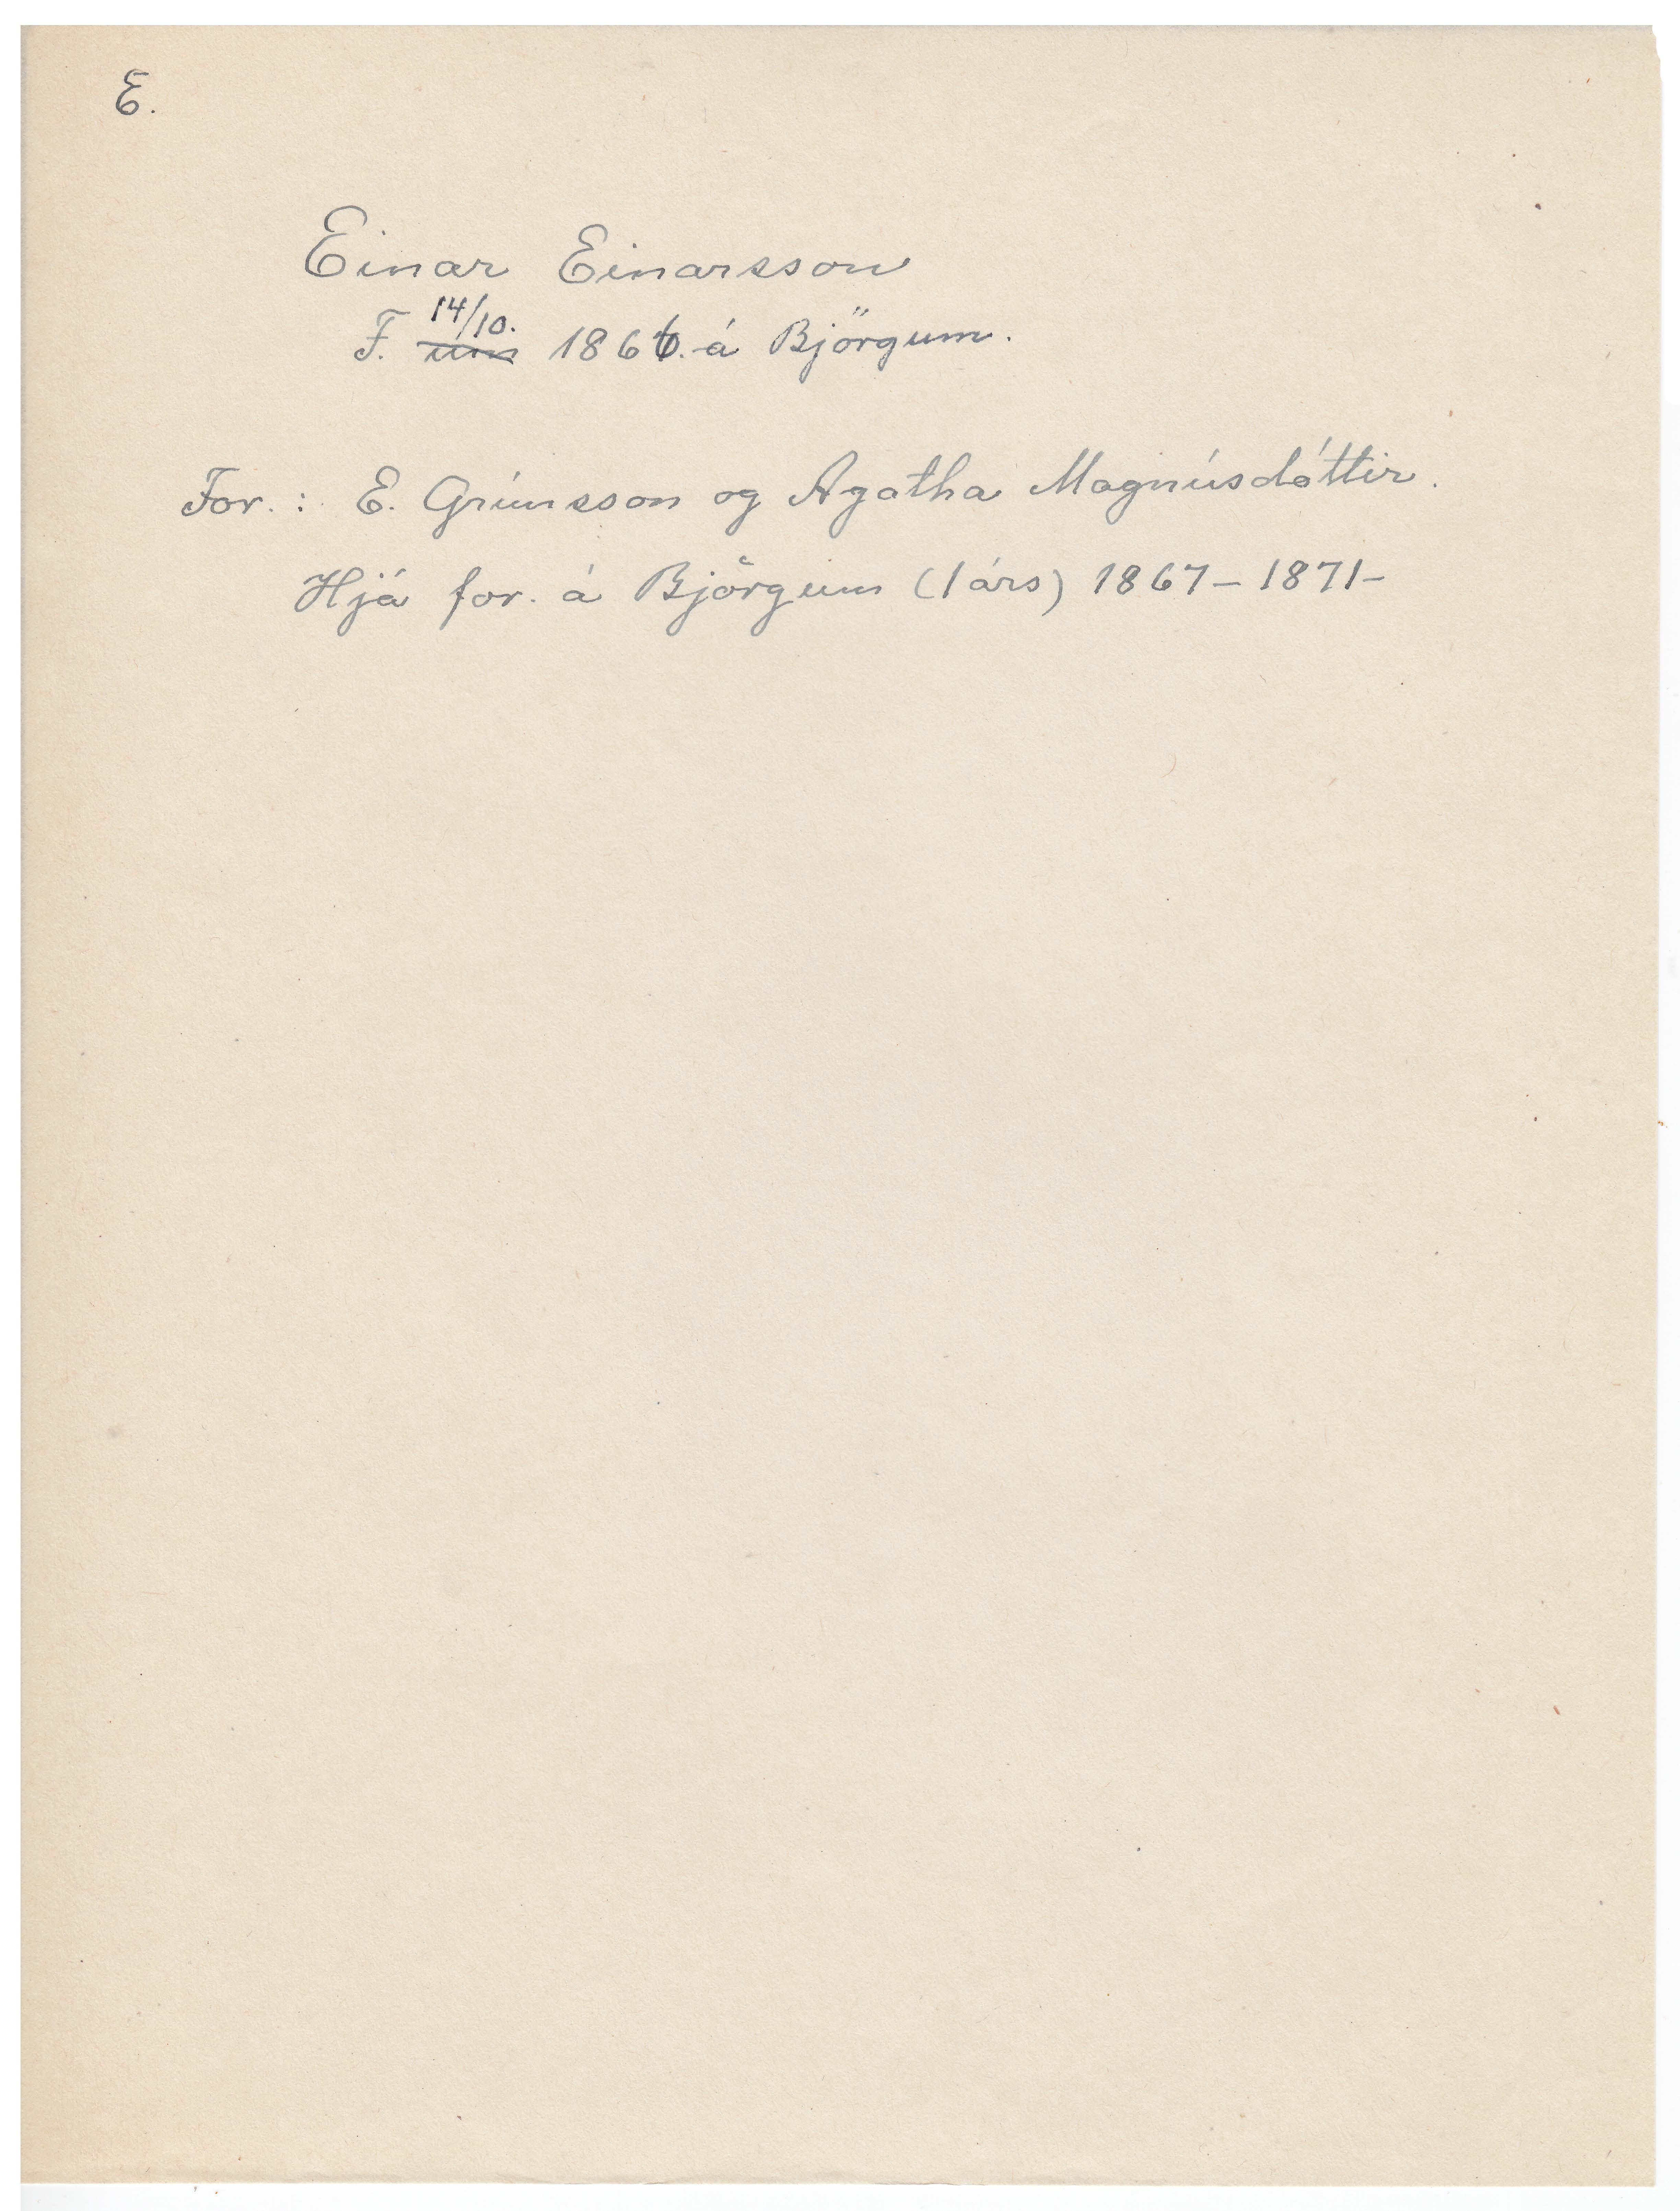 E.
Einar Einarsson
F. 14/10. 1866. á Björgum.
For.: E. Grímsson og Agatha Magnúsdóttir.
Hjá for. á Björgum (1 árs) 1867 – 1871 –